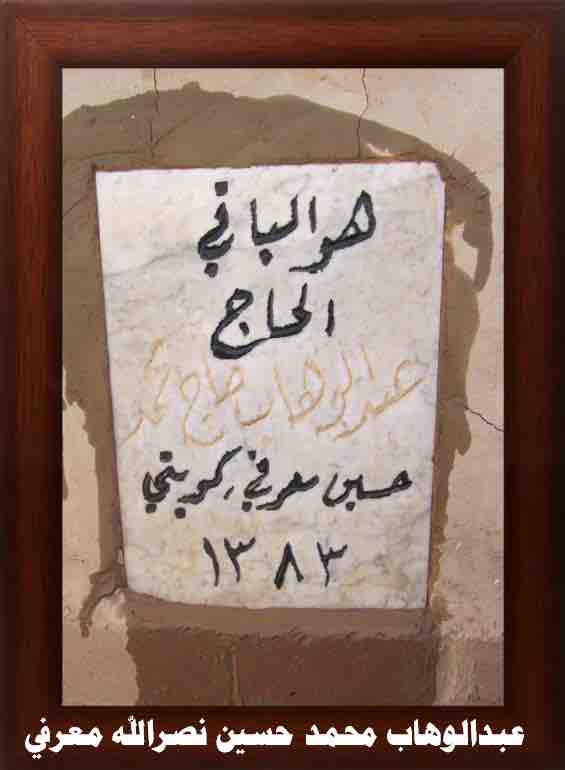 هو الباقي
الحاج
عبدالوهاب حاج محمد
حسين معرفي كويتي
١٣٨٣
عبدالوهاب محمد حسين نصرالله معرفي